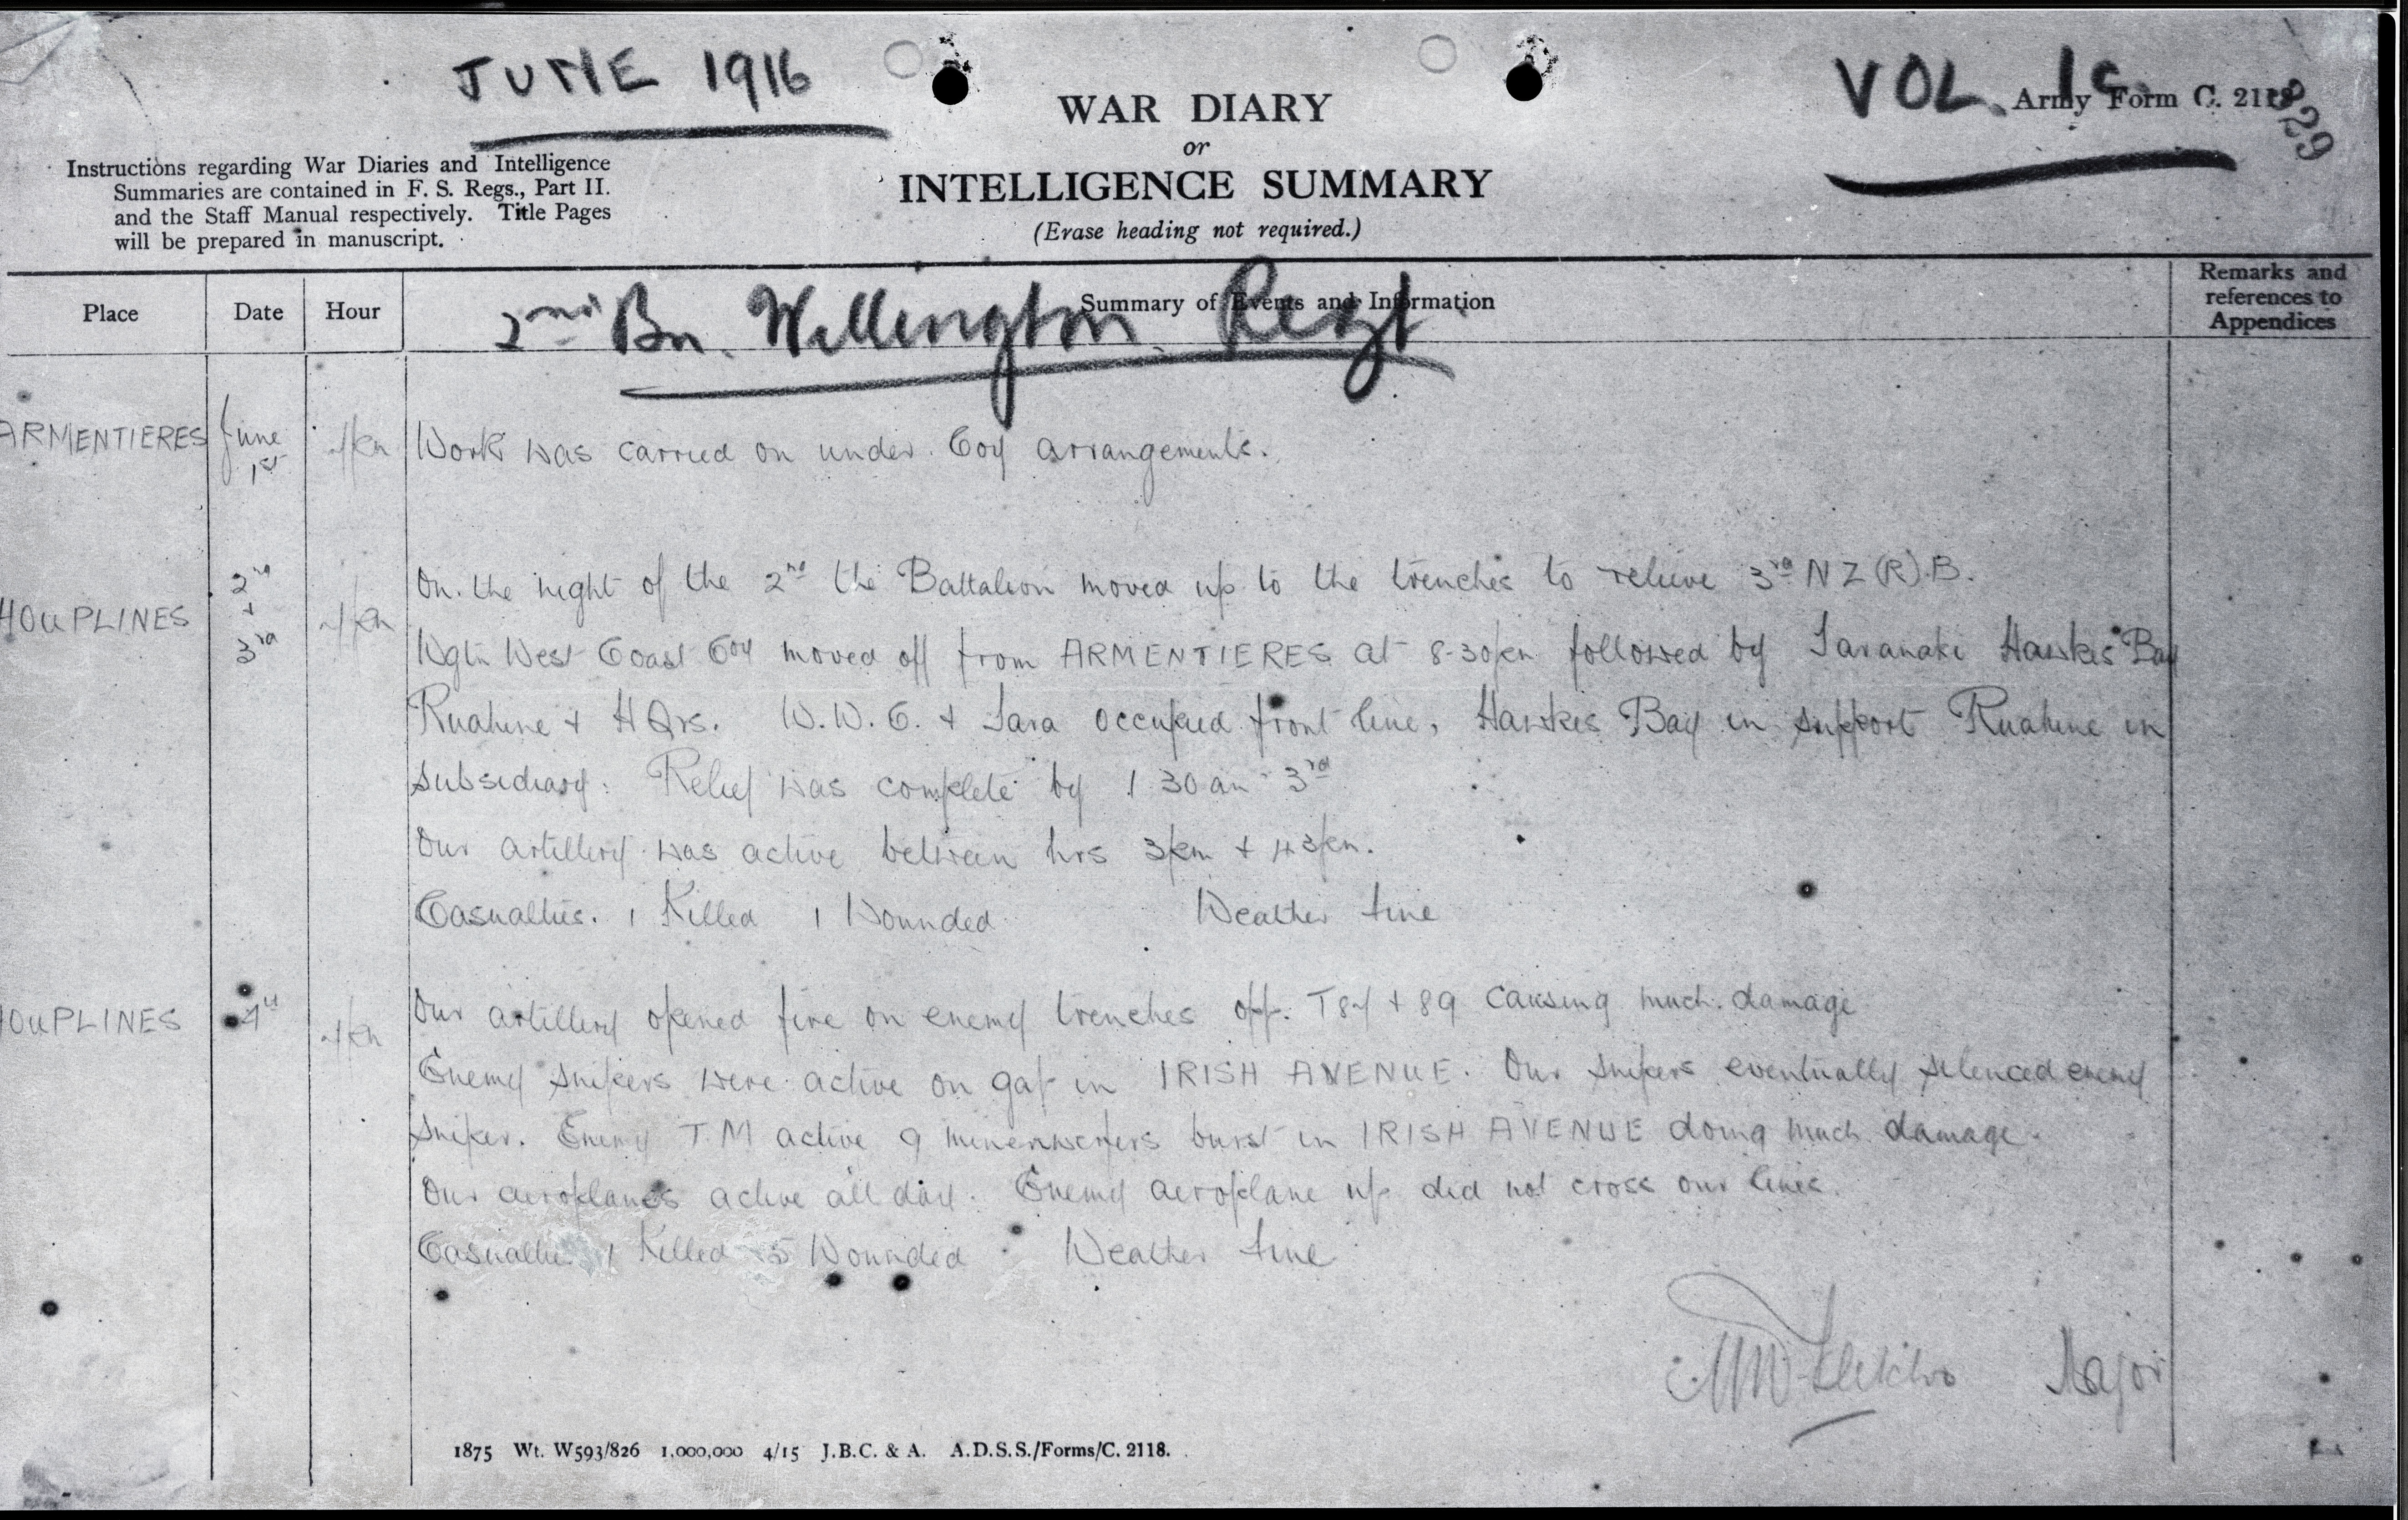 JUNE 1916
VOL.
Army Form C. 2118
829
WAR DIARY
or
INTELLIGENCE SUMMARY
(Erase heading not required.)
Instructions regarding War Diaries and Intelligence
Summaries are contained in F. S. Regs., Part II.
and the Staff Manual respectively. Title Pages
will be prepared in manuscript.
Place
Date
Hour
Summary of Events and Information
Remarks and
references to
Appendices
2nd Bn. Wellington Regt
ARMENTIERES June 1st Work was carried on under Coy arrangements.
On the night of the 2nd the Battalion moved up to the trenches to relieve 3rd NZ(R).B.
HOUPLINES 2nd + 3rd Wgtn West Coast Coy moved off from ARMENTIERES at 8-30pm followed by Taranaki Hawkes Bay
Ruahine + HQrs. W.W.C. + Tara occupied front line, Hawkes Bay in support Ruahine in
subsidiary. Relief was complete by 1 30 am 3rd
Our artillery was active between hrs 3pm +
Casualties. 1 Killed 1 Wounded Weather fine
HOUPLINES 4th Our artillery opened fire on enemy trenches opp. + 89 causing much damage
Enemy snipers were active on gap in IRISH AVENUE. Our snipers eventually silenced enemy
sniper. Enemy T.M active 9 minenwerfers burst in IRISH AVENUE doing much damage.
Our aeroplanes active all day. Enemy aeroplane up did not cross our lines.
Casualties 1 Killed 5 Wounded Weather fine
Major
1875 Wt. W593/826 1,000,000 4/15 J.B.C. & A. A.D.S.S./Forms/C. 2118.